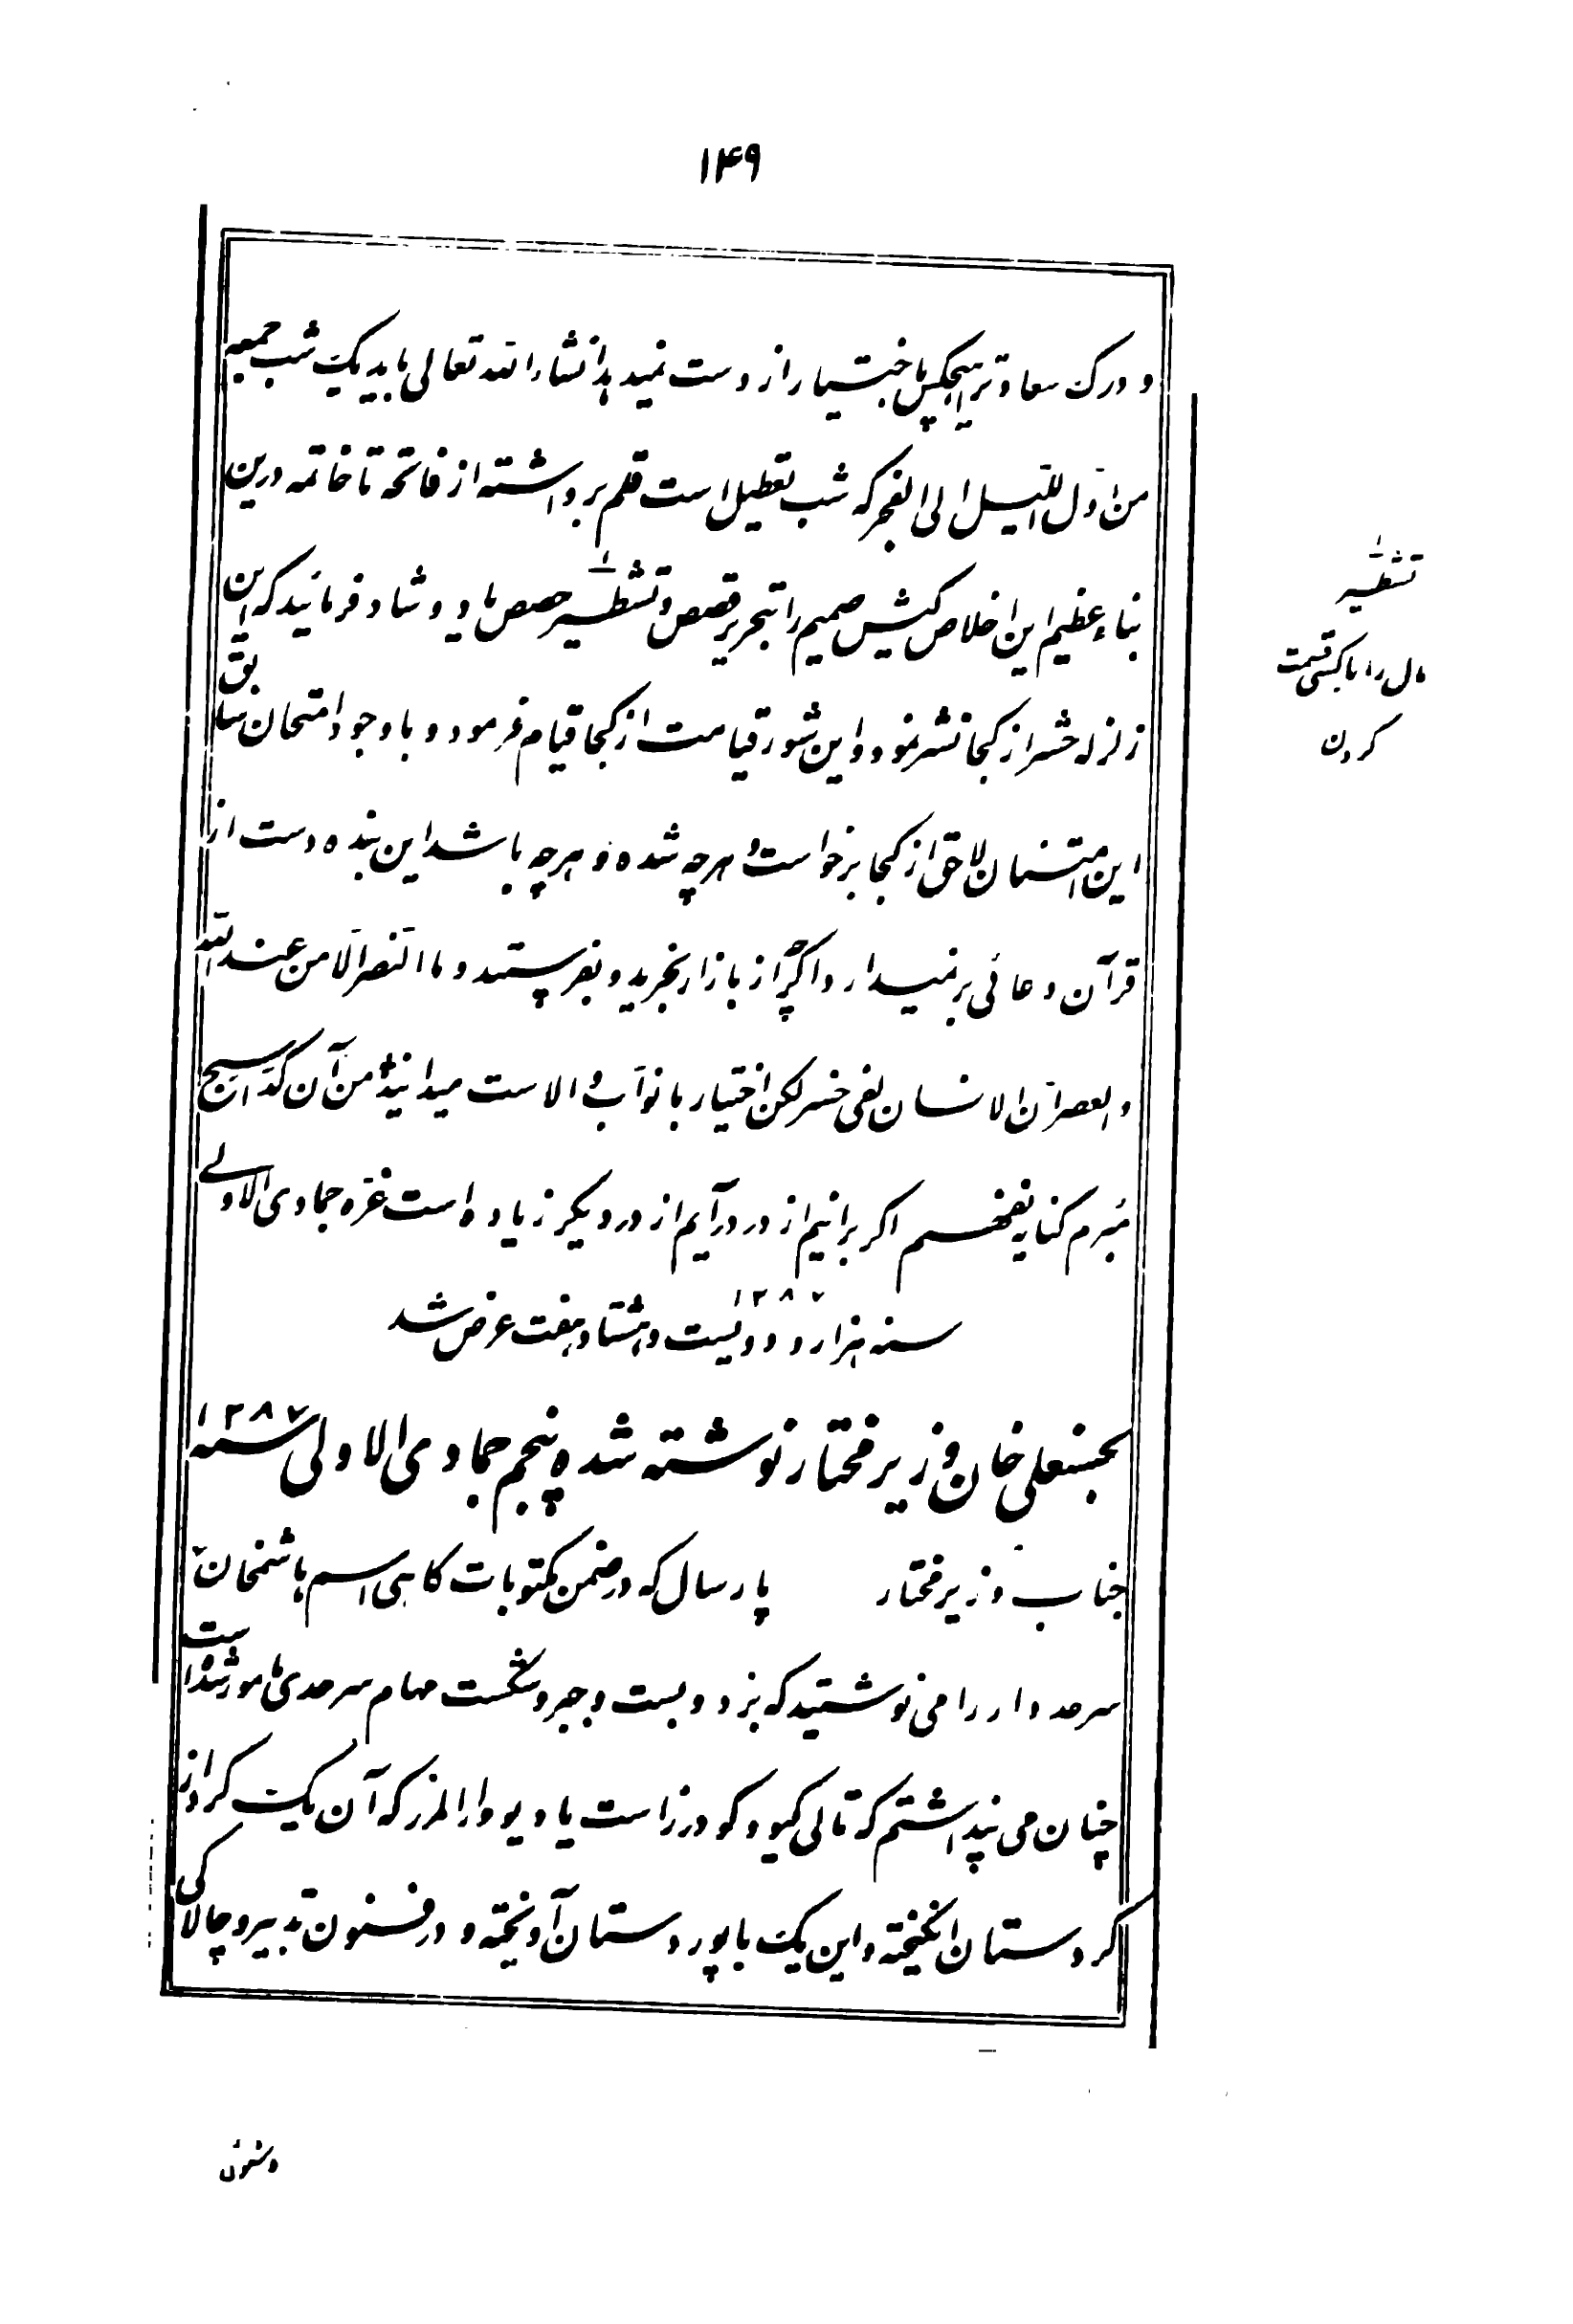 ۱۴۹
و درک سعادتر هیچکس باختیار از دست نمیدهد انشاء الله تعالی باید یک شب جمعه
من اوّل اللّیل الی الفجر که شب تعطیل است قلم برداشته از فاتحه تا خاتمه درین
بناء عظیم این اخلاص کیش صمیم را بتحریر قصص و تشطیر۱ حصص یاد و شاد فرمائید که این
زلزله حشر از کجا نشر نمود و این شور قیامت از کجا قیام فرمود و با وجود امتحان سابق
این امتنان لاحق از کجا برخواست و هرچه شده و هرچه باشد این بنده دست از
قرآن دعائی برنمیدارد اگرچه از بازار بخرید و بفرستید و ما النّصر الّا من عند الله
والعصر انّ الانسان لفی خسر لکن اختیار با نوّاب والاست میدانید من آن گدای سمج
مُبرم کنایه نفهمم اگر برانیم از در درآیم از در دیگر زیاده است غرّه جمادی الاولی
۱۲۸۷
سنه هزار و دویست و هشتاد و هفت عرض شد
بحسنعلی خان وزیر مختار نوشته شده پنجم جمادی الاولی سنه ۱۲۸۷
جناب وزیر مختار پارسال که در ضمن مکتوبات گاهی اسم هاشمخان
سرحددار را می نوشتید که بزد و بست و جبر و شکست مهام سرحدی مامور شده است
چنان می پنداشتم که تالی گیو و گودرز است یا دیو وارالمرز که آن یک گرد از
کردستان انگیخته و این یک با پور دستان آویخته و در فنون تدبیر و چالاکی
تشطیر۱
مال را با کسی قسمت
کردن
و شئون